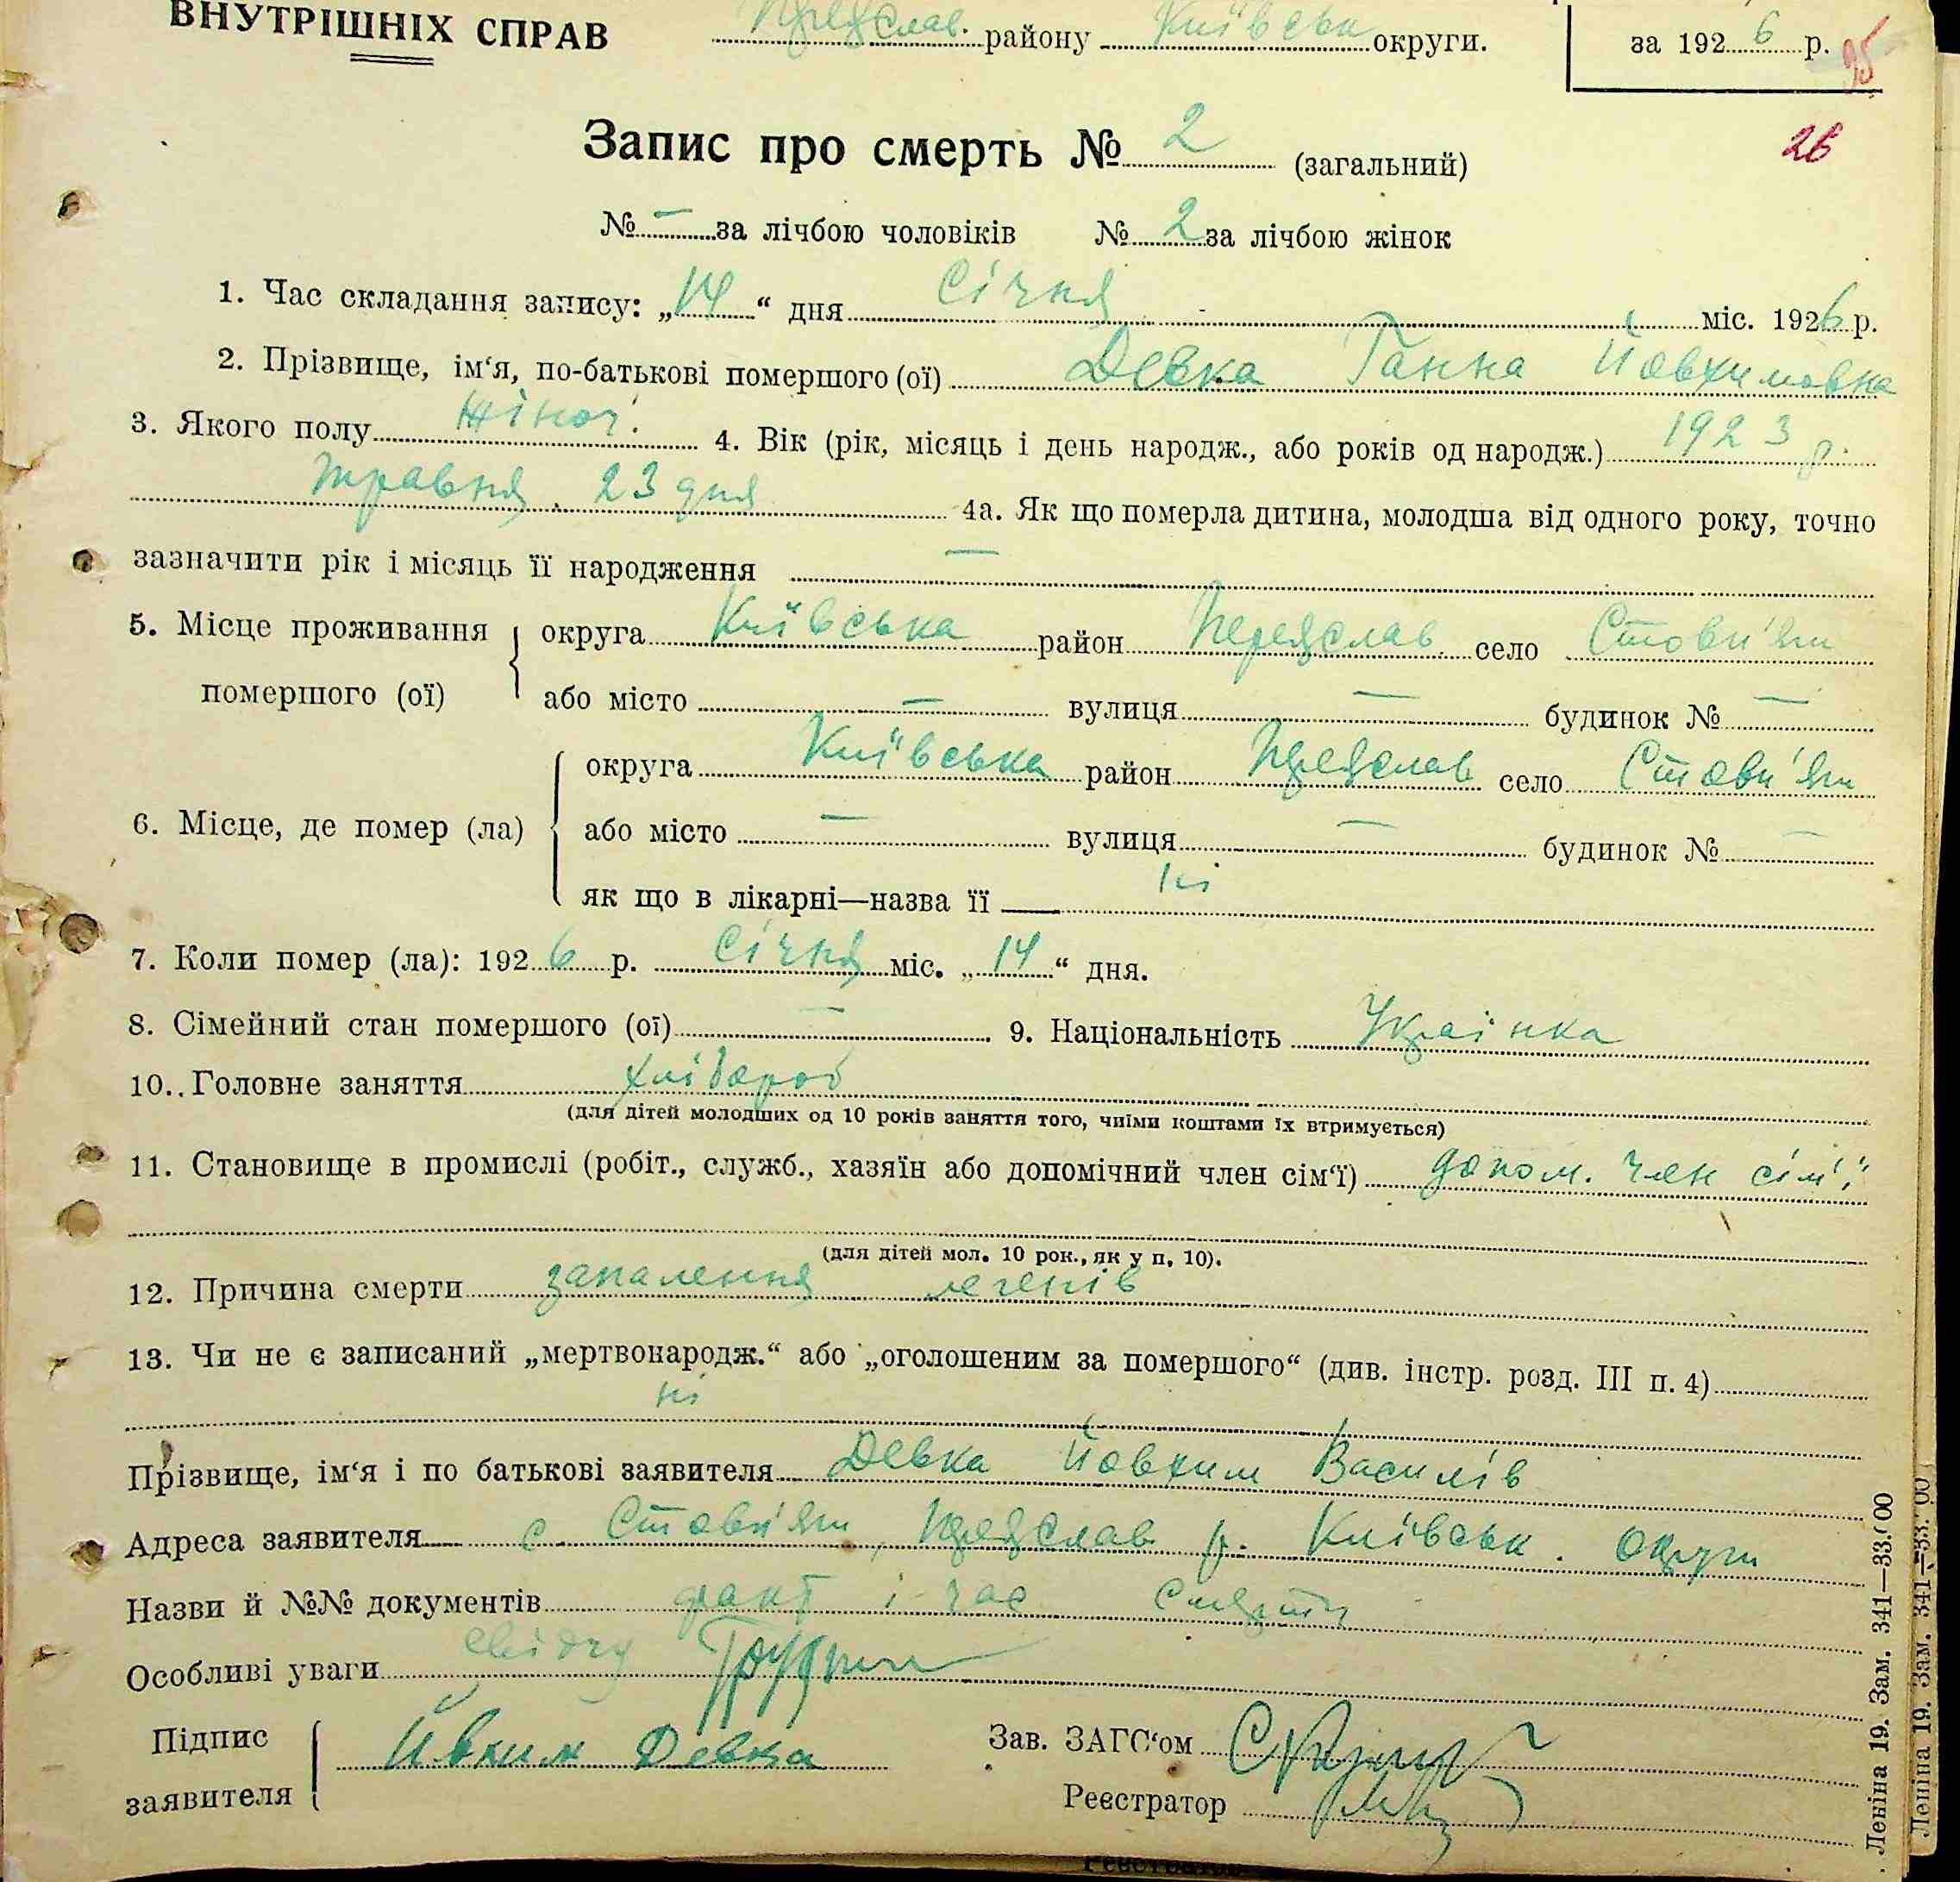 ВНУТРІШНІХ СПРАВ Переяслав. району Київськ округи. за 1926 р. 95
Запис про смерть № 2 (загальний) 26
№ — за лічбою чоловіків № 2 за лічбою жінок
1. Час складання запису: „14“ дня Січня міс. 1926 р.
2. Прізвище, ім‘я, по-батькові помершого (ої) Девка Ганна Йовхимовна
3. Якого полу жіноч. 4. Вік (рік, місяць і день народж., або років од народж.) 1923 р.
травня. 23 дня 4а. Як що померла дитина, молодша від одного року, точно
зазначити рік і місяць її народження —
5. Місце проживання округа Київська район Переяслав. село Стовп'яги
помершого (ої) або місто — вулиця — будинок № —
округа Київська район Переяслав село Стовп'яги
6. Місце, де помер (ла) або місто — вулиця — будинок № —
як що в лікарні—назва її ні
7. Коли помер (ла): 1926 р. Січня міс. „14“ дня.
8. Сімейний стан помершого (ої) — 9. Національність Українка
10. Головне заняття хлібороб
(для дітей молодших од 10 років заняття того, чиїми коштами їх втримується)
11. Становище в промислі (робіт., служб., хазяїн або допомічний член сім‘ї) допом. член сім'ї
(для дітей мол. 10 рок., як у п. 10).
12. Причина смерти запалення легенів
13. Чи не є записаний „мертвонародж.“ або „оголошеним за помершого“ (див. інстр. розд. III п. 4)
ні
Прізвище, ім‘я і по батькові заявителя Девка Йовхим Василів
Адреса заявителя с Стовп'яги, Переяслав р. Київськ. округи
Назви й №№ документів факт і час смерти
Особливі уваги свідчу
Підпис Йвхим Девка Зав. ЗАГС‘ом
заявителя Реєстратор
Леніна 19. Зам. 341—33.000
Леніна 19. Зам. 341—33.000